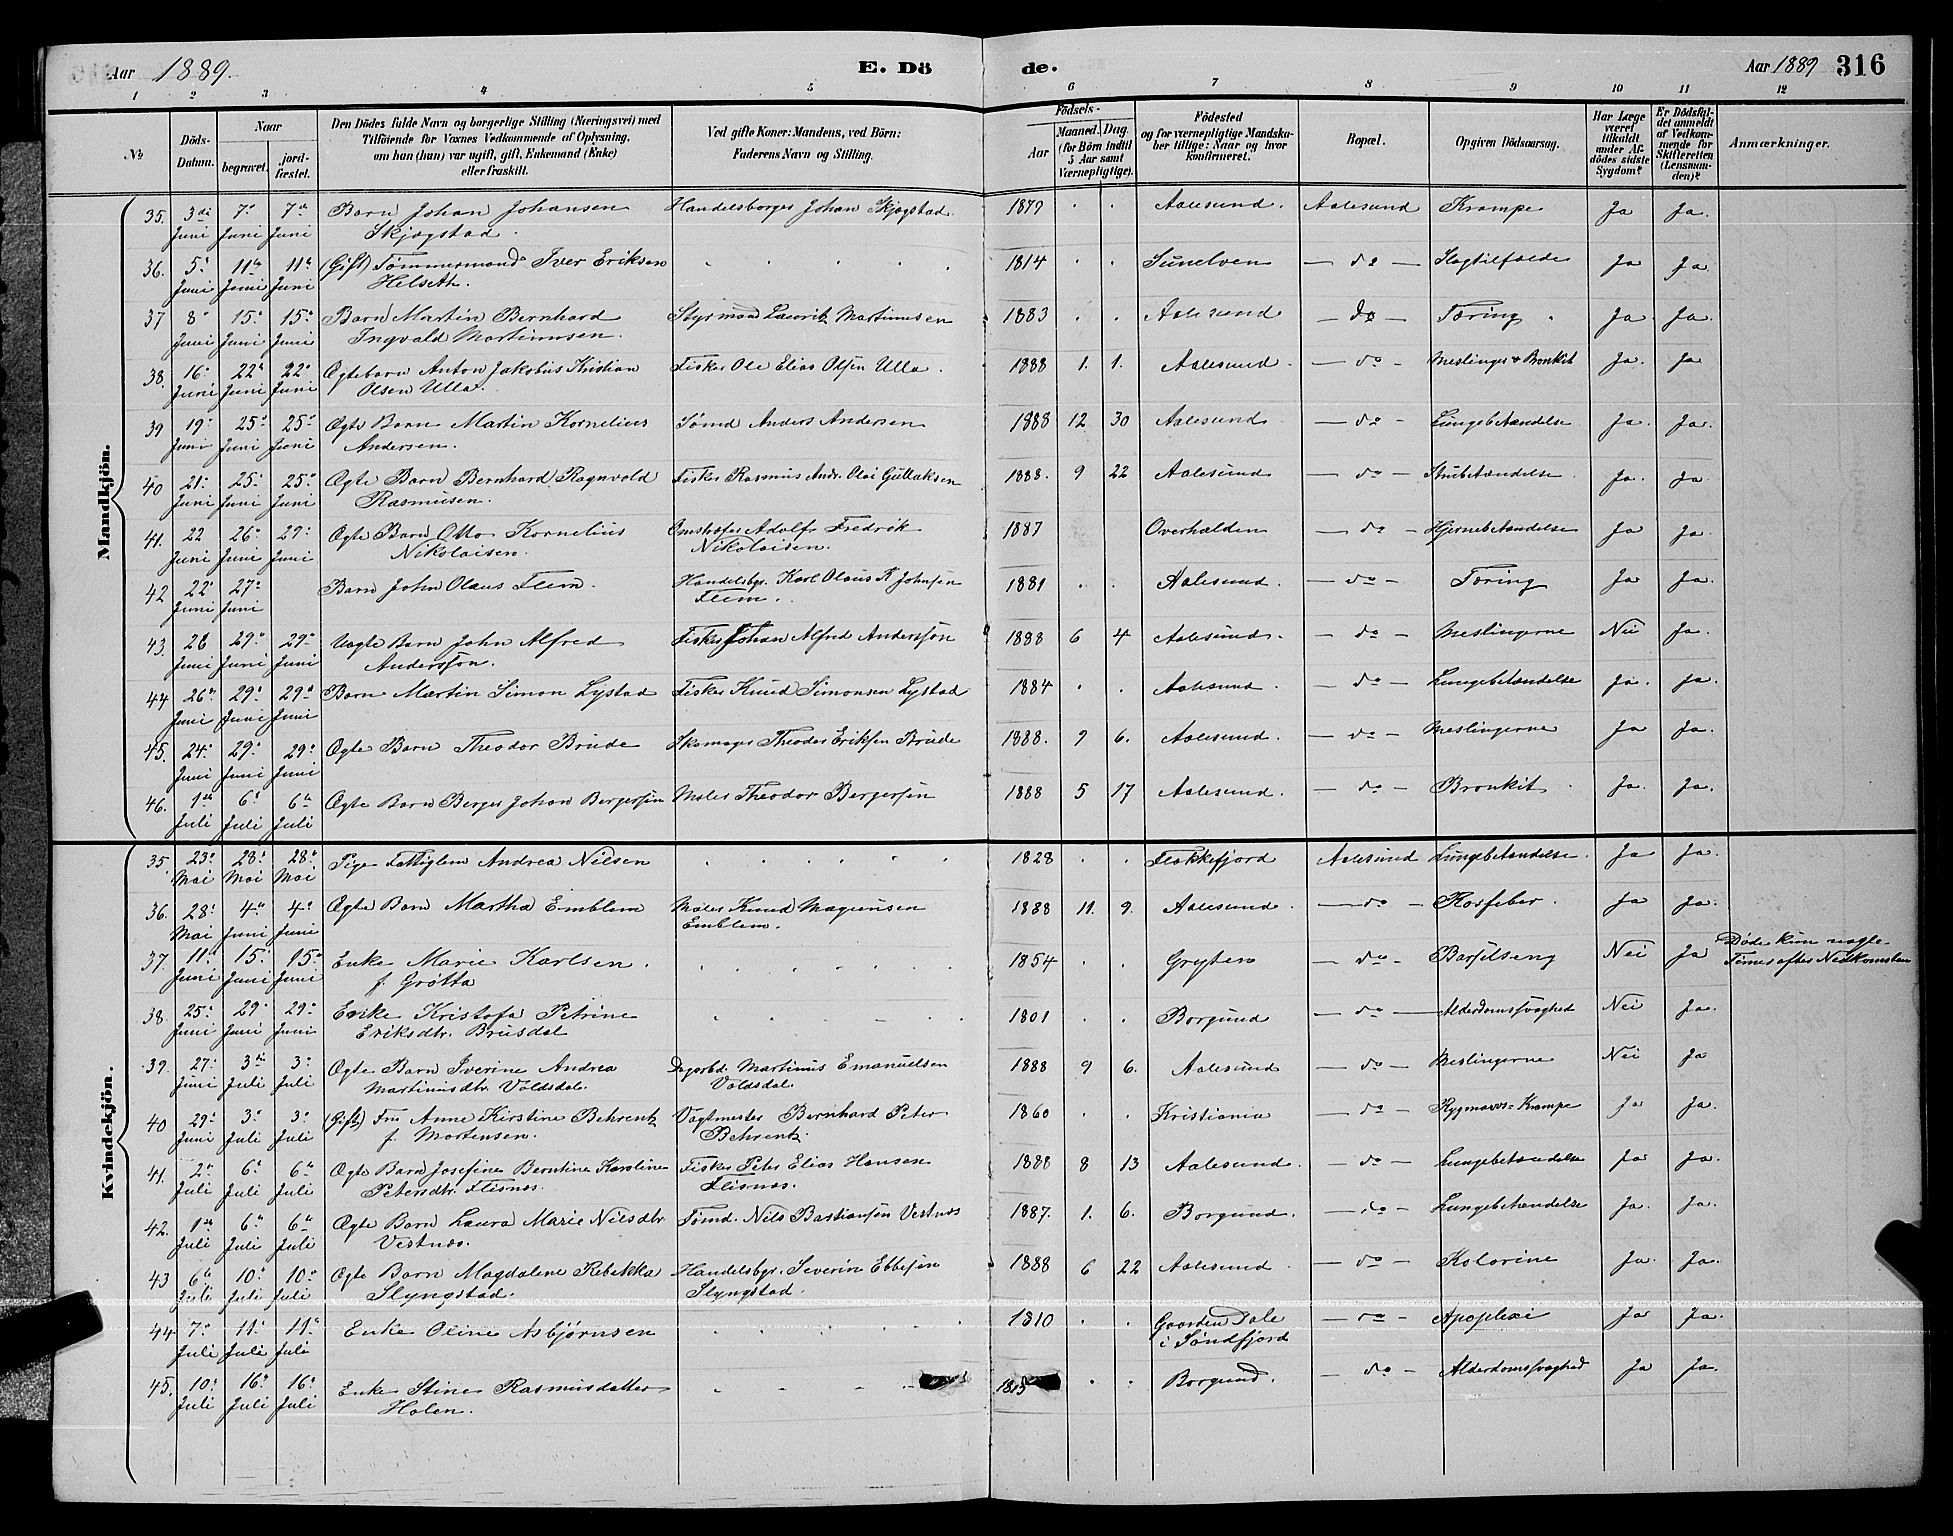 Aar 1889.
E. Dö
de.
Aar 1889 316
1 2 3 4 5 6 7 8 9 10 11 12
No
Döds-Datum.
Naar begravet. jordfæstet.
Den Dödes fulde Navn og borgerlige Stilling (Næringsvei) med Tilföiende for Voxnes Vedkommende af Oplysning, om han (hun) var ugift, gift, Enkemand (Enke) eller fraskilt.
Ved gifte Koner: Mandens, ved Börn: Faderens Navn og Stilling.
Födsels-
Aar Maaned. Dag. (for Börn indtil 5 Aar samt Værnepligtige).
Födested og for værnepligtige Mandskaber tillige: Naar og hvor konfirmeret.
Bopæl.
Opgiven Dödsaarsag.
Har Læge været tilkaldt under Afdödes sidste Sygdom?
Er Dödsfaldet anmeldt af Vedkommende for Skifteretten (Lensmanden)?
Anmærkninger.
Mandkjön.
35. 3di Juni 7e Juni 7de Juni Barn Johan Johansen Skjøgstad. Handelsborger Johan Skjøgstad. 1879 Aalesund. Aalesund Krampe Ja Ja.
36. 5e Juni 11te Juni 11te Juni (Gift) Tømmermand Iver Eriksen Helseth. 1814 Sunelven — do — Slagtilfælde Ja Ja.
37 8e Juni 15e Juni 15e Juni Barn Martin Bernhard Ingvald Martinusen. Styrmand Laurits Martinusen 1883 Aalesund — do — Tæring Ja Ja.
38. 16e Juni 22e Juni 22e Juni Ægtebarn Anton Jakobus Kristian Olsen Ulla. Fisker Ole Elias Olsen Ulla. 1888 1. 1. Aalesund — do — Meslinger & Bronkit Ja. Ja
39 19e Juni 25e Juni 25e Juni Ægte Barn Martin Kornelius Andersen. Sømd Anders Andersen 1888 12 30 Aalesund — do — Lungebetændelse Ja. Ja.
40 21e Juni 25e Juni 25e Juni Ægte Barn Bernhard Ragnvald Rasmusen. Fisker Rasmus Andr. Olai Gullaksen 1888. 9 22 Aalesund — do — Strubetændelse Ja. Ja.
41. 22 Juni 26e Juni 27e Juni Ægte Barn Otto Kornelius Nikolaisen. Adolf Fredrik Nikolaisen. 1887 Overhalden — do — Hjernebetændelse Ja Ja.
42 22e Juni 27e Juni Barn John Olaus Flem. Handelsbgr. Karl Olaus R Johnsen Flem. 1881 Aalesund. — do — Tæring Ja Ja.
43. 26 Juni 29e Juni 29e Juni Uægte Barn John Alfred Andersson. Fisker Johan Alfred Andersson 1888 6 4 Aalesund. — do — Meslingerne Nei Ja.
44 26e Juni 29e Juni 29e Juni Barn Martin Simon Lystad Fisker Knud Simonsen Lystad 1884 Aalesund. — do — Lungebetændelse Ja. Ja.
45. 24e Juni 29e Juni 29e Juni Ægte Barn Theodor Brude Skomager Theodor Eriksen Brude 1888. 9 6. Aalesund. — do — Meslingerne Ja Ja.
46. 1ste Juli 6te Juli 6te Juli Ægte Barn Berger Johan Bergersen Maler Theodor Bergersen 1888 5 17 Aalesund. — do — Bronkit Ja. Ja.
Kvindekjön.
35 23e Mai 28e Mai 28e Mai Pige Fattiglem Andrea Nilsen 1828 Flekkefjord Aalesund Lungebetændelse. Ja Ja.
36. 28e Mai 4e Juni 4e Juni Ægte Barn Martha Emblem Maler Knud Magnusen Emblem. 1888 11. 9. Aalesund. — do — Rosfeber. Ja Ja.
37. 11te Juni 15e Juni 15e Juni Enke Marie Karlsen. f. Grøtta 1854 Gryten — do — Barselseng Nei Ja Døde kun nogle Timer efter Nedkomsten
38. 25e Juni 29e Juni 29e Juni Enke Kristofa Petrine Eriksdtr. Brusdal 1801 Borgund — do — Alderdomssvaghed Nei Ja.
39. 27e Juni 3die Juli 3e Juli Ægte Barn Iverine Andrea Martinusdtr. Voldsdal. Martinus Emanuelsen Voldsdal. 1888 9 6. Aalesund — do — Meslingerne Nei Ja
40 29e Juni 3e Juli 3e Juli (Gift) Fru Anne Kirstine Behrentz f. Mortensen. Vagtmester Bernhard Peter Behrentz. 1860 Kristiania — do — Rygmarvs-Krampe Ja Ja.
41. 2e Juli 6te Juli 6te Juli Ægte Barn Josefine Berntine Karoline Petersdtr. Flisnæs. Fisker Peter Elias Hansen Flisnæs. 1888 8 13 Aalesund. — do — Lungebetændelse Ja Ja.
42. 1ste Juli 6te Juli 6te Juli Ægte Barn Laura Marie Nilsdtr Vestnæs. Tømd. Nils Bastiansen Vestnæs 1887. 1. 6. Borgund. — do — Lungebetændelse Ja. Ja.
43 6te Juli 10e Juli 10e Juli Ægte Barn Magdalene Rebekka Slyngstad. Handelsbgr. Severin Ebbesen Slyngstad. 1888 6 22 Aalesund — do — Kolorine Ja. Ja.
44. 7e Juli 11e Juli 11e Juli Enke Oline Asbjørnsen 1810 Gaarden Dale i Søndfjord — do — Apoplexi Ja Ja.
45. 10e Juli 16e Juli 16e Juli Enke Stine Rasmusdatter Holen. Borgund. — do — Alderdomssvaghed Ja Ja.